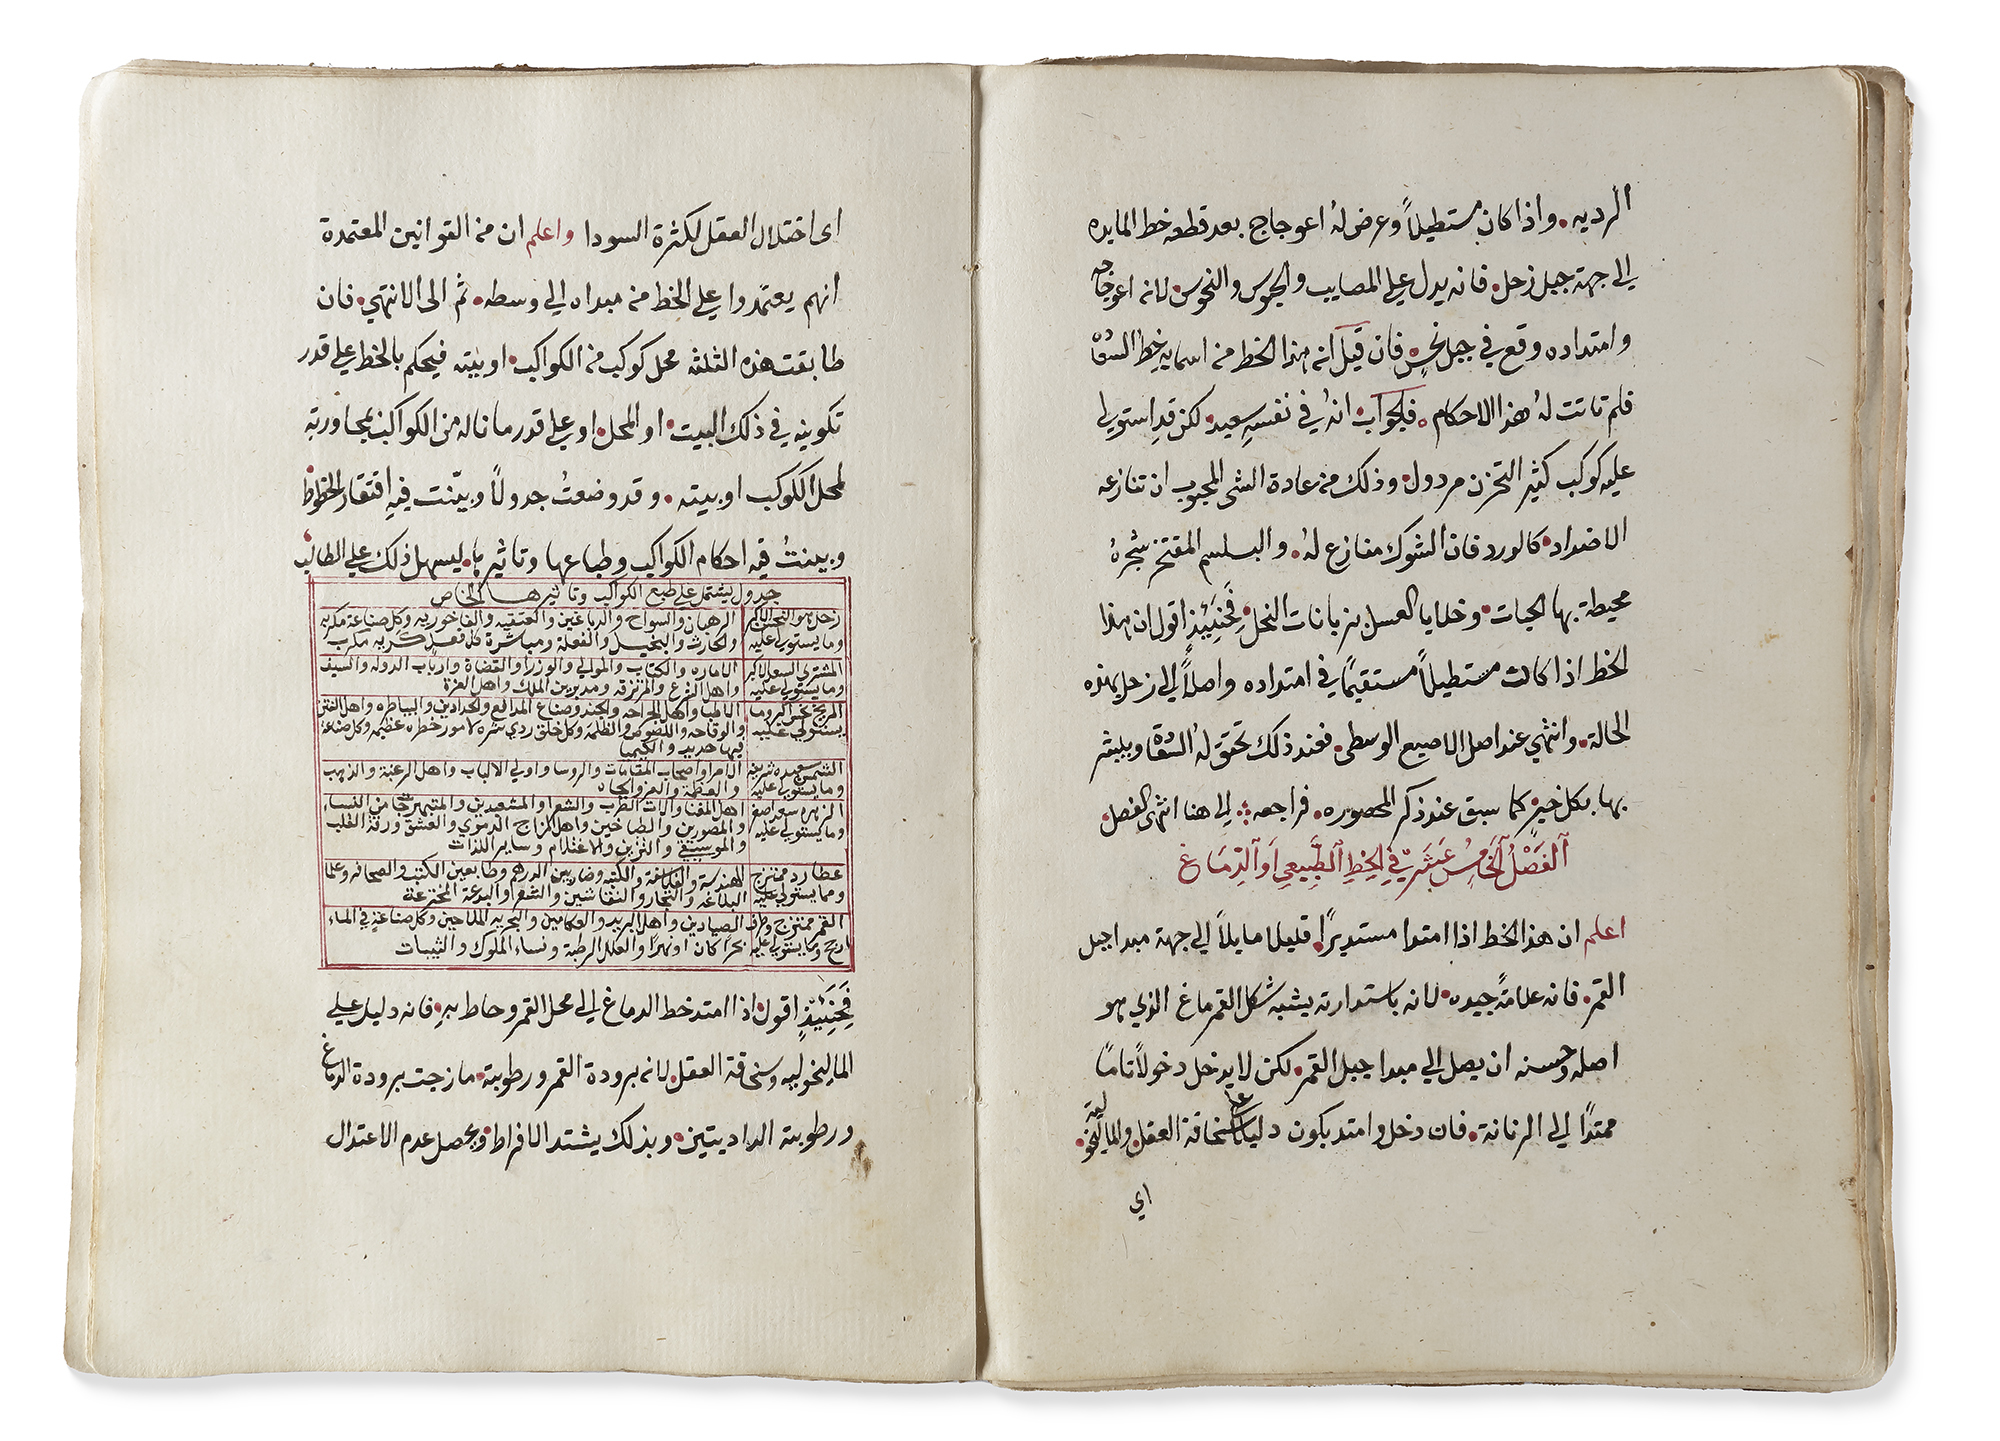 الرديه. واذا كان مستطيلاً وعرض لهُ اعوجاج بعد قطعه خط المايده
الى جهة جبل زحل. فانه يدل على المصايب والحبوس والنحوس. لانه اعوجاجه
وامتداده وقع في جبل نحس. فان قيل انه هذا الخط من اسمايه خط السعاده
فلم تاتت لهُ هذا الاحكام. فالجواب. انهُ في نفسهِ سعيد. لكن قد استولى
عليه كوكب كثير التحزن مردول. وذلك من عادة الشي المحبوب ان تنازعه
الاضداد. كالورد فان الشوك منازع لهُ. والبلسم المفتخر شجرهُ
محيطة بها الحيات. وخلايا العسل بزبانات النحل. فحَينَئِيذٍ اقول ان هذا
الخط اذا كانت مستطيلاً مستقيمًا في امتداده واصلاً الى زحل بهذه
الحالة. وانتهى عند اصل الاصبع الوسطى. فعند ذلك تحقق لهُ السعاده ويبشر
بها بكل خير. كما سبق عند ذكر المحصوره. فراجعه. الى هنا انتهى الفصل.
اَلفَصْلُ اَلخَامِسُ عَشَرَ فِي الخِطِ الطَّبِيعِي اَو الدِمَاغ
اعلم ان هذا الخط اذا امتدا مستديرًا. قليلا مايلاً الى جهة مبدا جبل
القمر. فانه علامةً جيده. لانه باستدارته يشبه شكل القمر ماغ الذي هو
اصله وحسنه ان يصل الى مبدا جبل القمر. لكن لا يدخل دخولاً تامًا
ممتدًا الى الزنانة. فان دخل وامتد يكون دليلا على سخافة العقل. والماليخوليه.
اي
اى اختلال العقل لكثرة السودا واعلم ان من القوانين المعتمدة
انهم يعتمدوا على الخط من مبداه الى وسطه. ثم الى الانتهى. فان
طابقت هذه الثلثه محل كوكب من الكواكب. او بيته فيحكم بالخط على قدر
تكوينه في ذلك البيت. او المحل. او على قدر ما ناله من الكواكب بمجاورته
لمحل الكوكب او بيته. وقد وضعتُ جدولاً وبيّنت فيهِ افتقار الخطوط
وبينتُ فيه احكام الكواكب وطباعها وتاثيرها. ليسهل ذلك على الطالب
جدول يشتمل على طبع الكواكب وتاثيرها الخاص
زحل هو النحس الاكبر الرهبان والسواح والدباغين والعتقيه والفاخوريه وكل صناعة مكربه
وما يستولى عليه والحارث والبخيل والفعلة ومباشرة كل فعل كربه مكرب
المشتري السعد الاكبر الاماره والكتاب والموالي والوزرا والقضاة وارباب الدوله والسيف
وما يستولي عليه واهل الشرع والمرتزقه ومدبرين الملك واهل العزة
المريخ نحس اكبر وما الاطبا واهل الجراحه والجند وصناع المدافع والحدادين والبياطره واهل الفتن
يستولي عليه والوقاحه واللصوص والظلمة وكل خلق ردي شره لامور خطره عظيمه وكل صناعة
فيها حديد والكيميا
الشمس سعيده شريفه الامرا واصحاب المقامات والروسا واولي الالباب واهل الرعبة والذهب
وما يستولي عليه والعظمة والعز والجاه
الزهره سعد اصغر اهل المغنا والات الطرب والشعرا والمشعبدين والمتبهرجات من النساء
وما يستولي عليه والمصورين والطباخين واهل المزاج الدموي والعشق ورقة القلب
والموسيقي والتزين والاغتلام وساير اللذات
عطارد ممتزج الهندسة والفلاسفة والكتبه وضاربين الدرهم وطابعين الكتب والصحافه وعلما
ومما يستولي عليه البلاغه والتجار والنقاشين والشعرا والبدعة المخترعة
القمر ممتزج وطرف الصيادين واهل البريد والعكامين والبحريه الملاحين وكل صناعة في الماء
وما يستولي عليه بحرًا كان او نهرًا والعلل الرطبة ونساء الملوك والثيبات
فَحَينَئِيذٍ اقول. اذا امتد خط الدماغ الى محل القمر وحاط بهِ. فانه دليل على
الماليخوليه وسخافة العقل. لانه برودة القمر ورطوبته. مازجت برودة الدماغ
ورطوبته الداديتين. وبذلك يشتد الافراط. ويحصل عدم الاعتدال